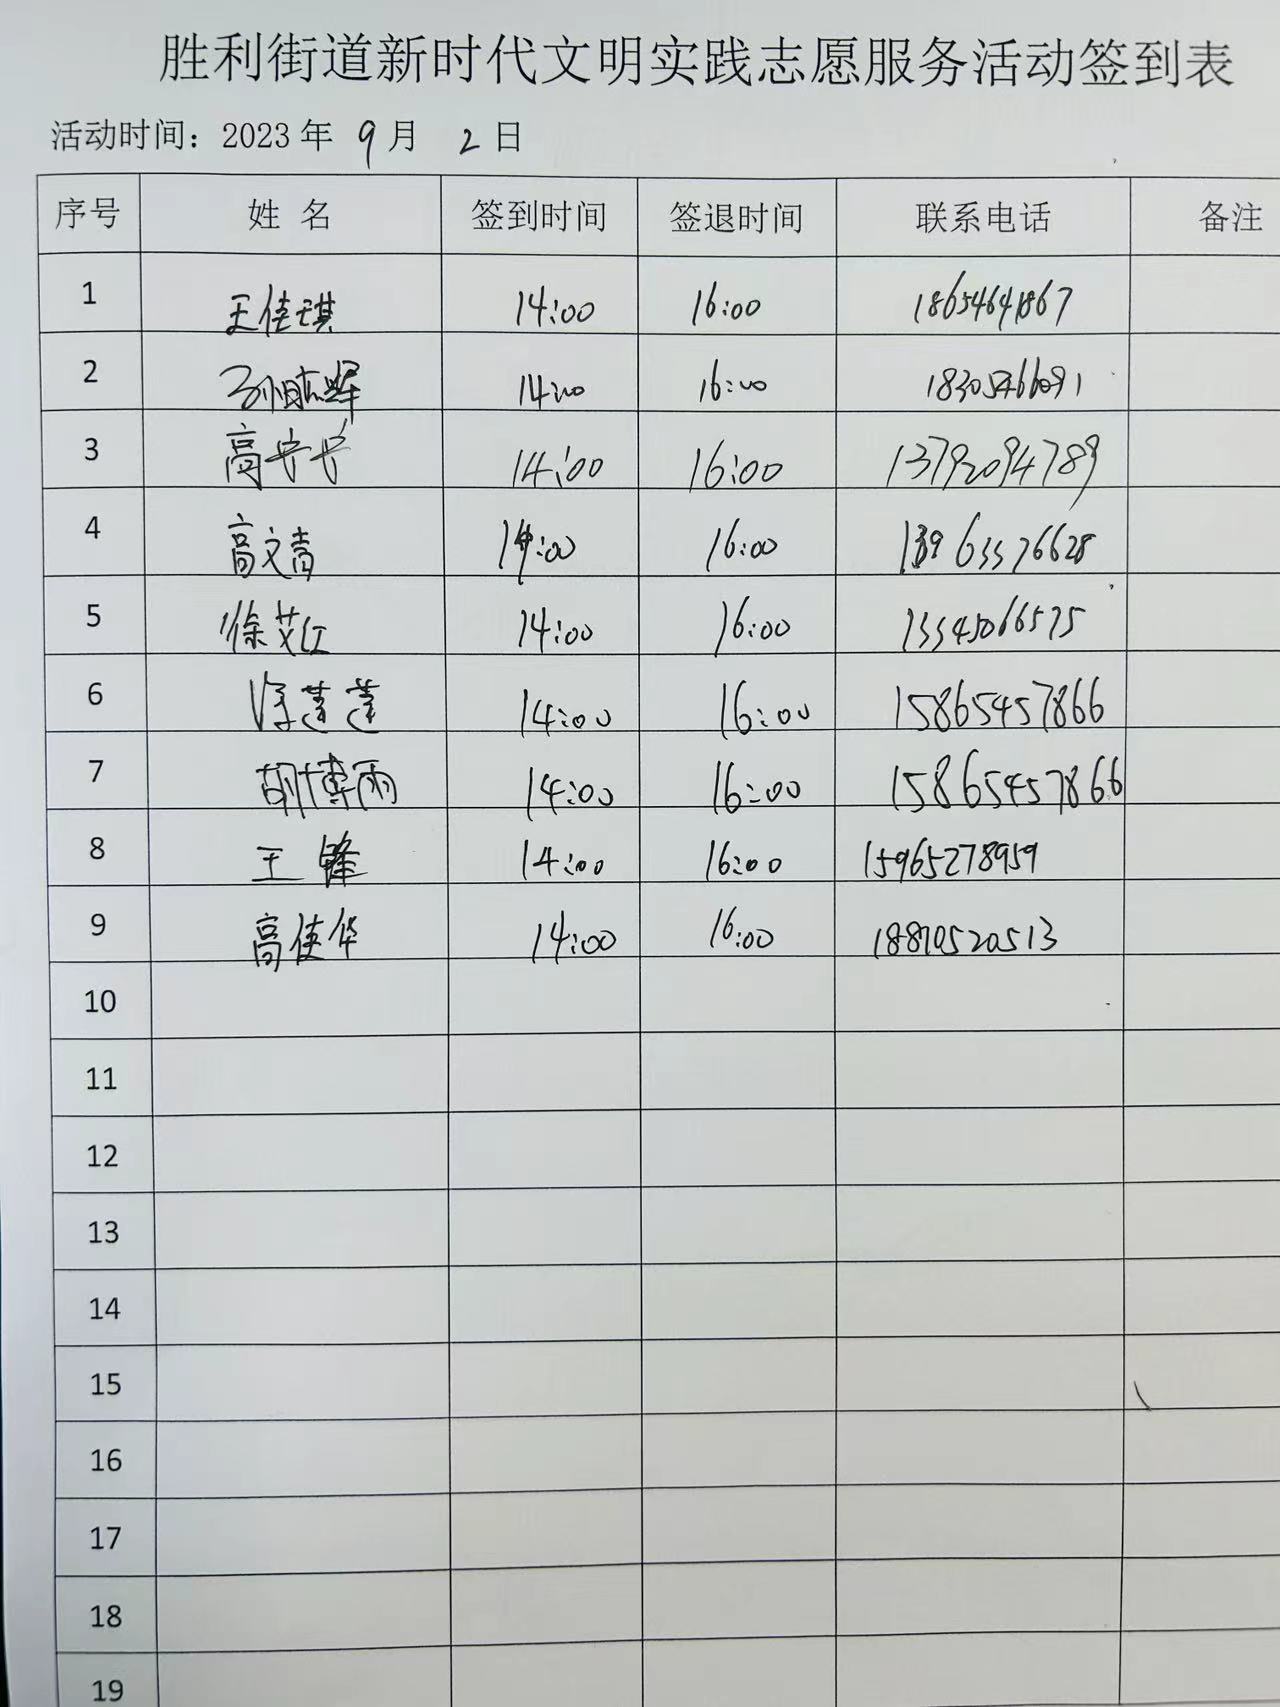 胜利街道新时代文明实践志愿服务活动签到表
活动时间：2023年 9月 2日
序号 姓 名 签到时间 签退时间 联系电话 备注
1 王佳琪 14:00 16:00 18654641867
2 14:00 16:00
3 高安安 14:00 16:00 13792094789
4 高文青 14:00 16:00 13963376628
5 徐艾红 14:00 16:00 13345066575
6 徐莲莲 14:00 16:00 15865457866
7 胡博雨 14:00 16:00 15865457866
8 王 锋 14:00 16:00 15965278959
9 高佳华 14:00 16:00
10
11
12
13
14
15
16
17
18
19